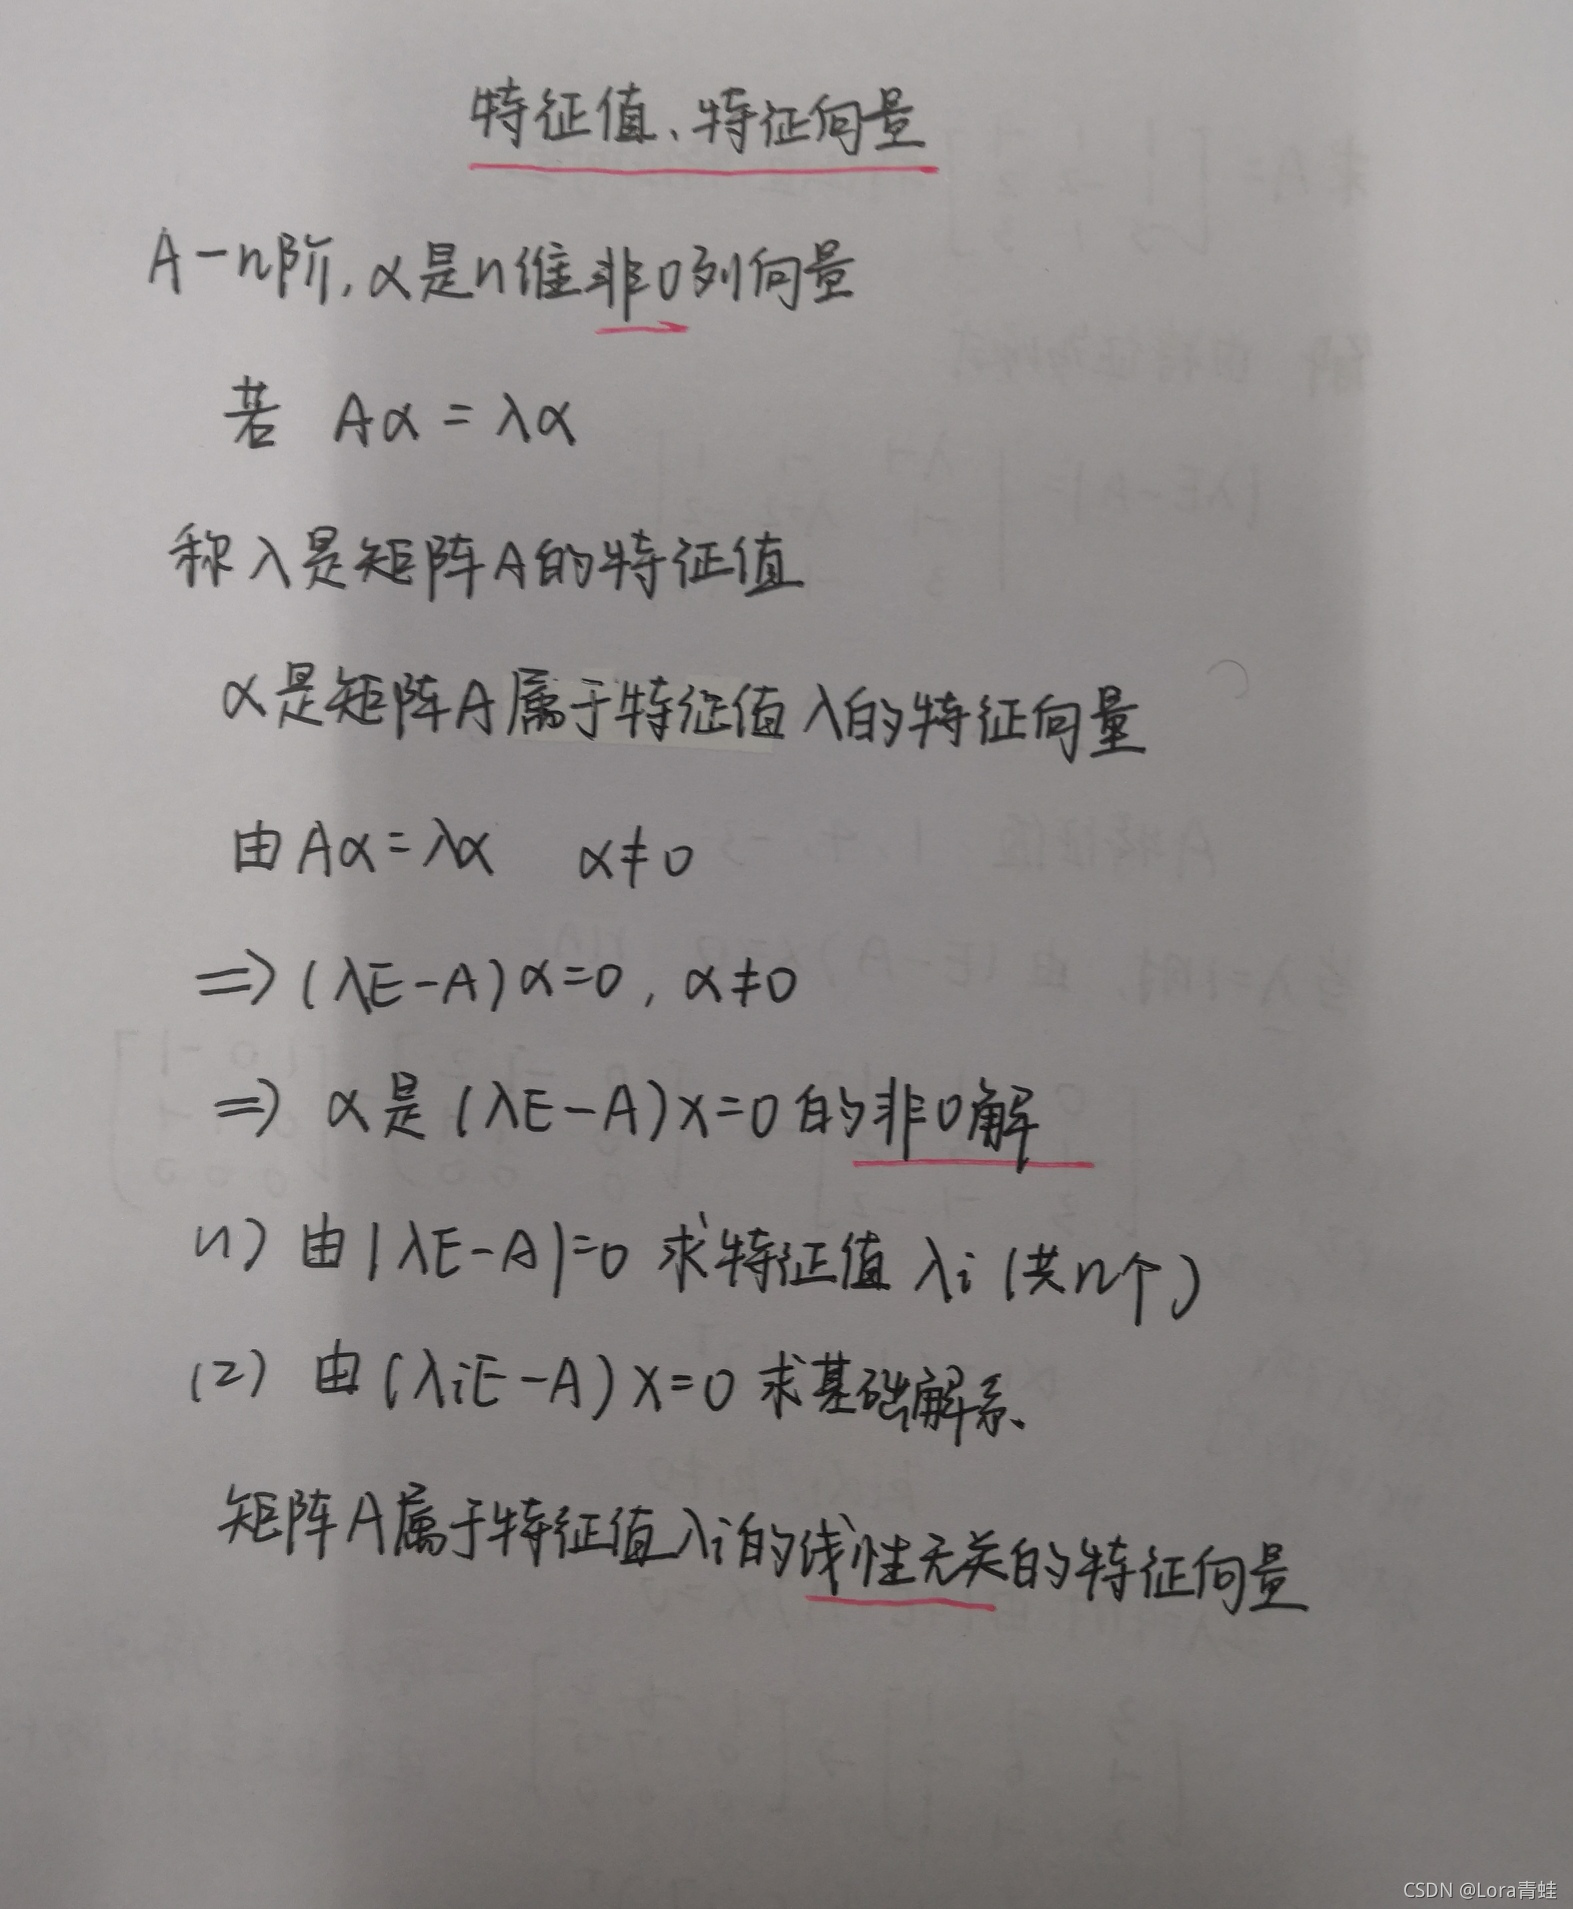 特征值、特征向量
A-n阶,α是n维非0列向量
若 Aα=λα
称入是矩阵A的特征值
α是矩阵A属于特征值λ的特征向量
由Aα=λα α≠0
⇒(λE-A)α=0,α≠0
⇒ α是(λE-A)x=0的非0解
(1) 由|λE-A|=0 求特征值 λi (共n个)
(2) 由(λiE-A)x=0 求基础解系、
矩阵A属于特征值λi的线性无关的特征向量
CSDN @Lora青蛙